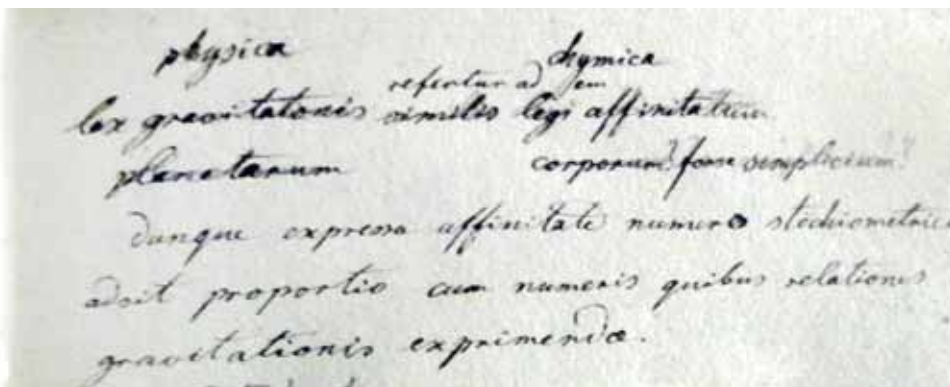 physica chymica
refertur ad em
lex gravitationis similis legi affinitatum
planetarum corporum? forse simplicium?
dunque expressa affinitate numero stochiometric
adsit proportio cum numeris quibus relationes
gravitationis exprimendæ.